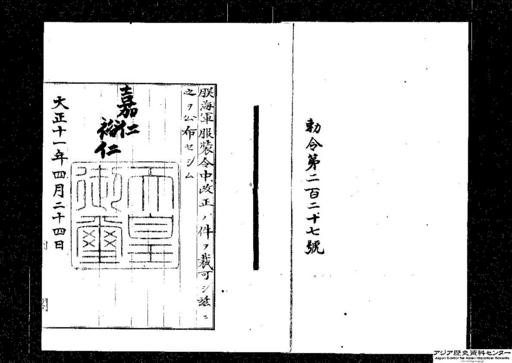 朕海軍服裝令中改正ノ件ヲ裁可シ玆ニ
之ヲ公布セシム
嘉仁
裕仁
天皇
御璽
大正十一年四月二十四日
勅令第二百二十七號
アジア歴史資料センター
Japan Center for Asian Historical Records